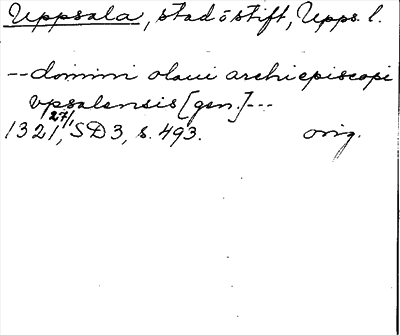 Uppsala, stad o stift, Upps. l.
-- domini olaui archiepiscopi
vpsalensis [gen.] ---
1321 27/1, SD 3, s. 493. orig.